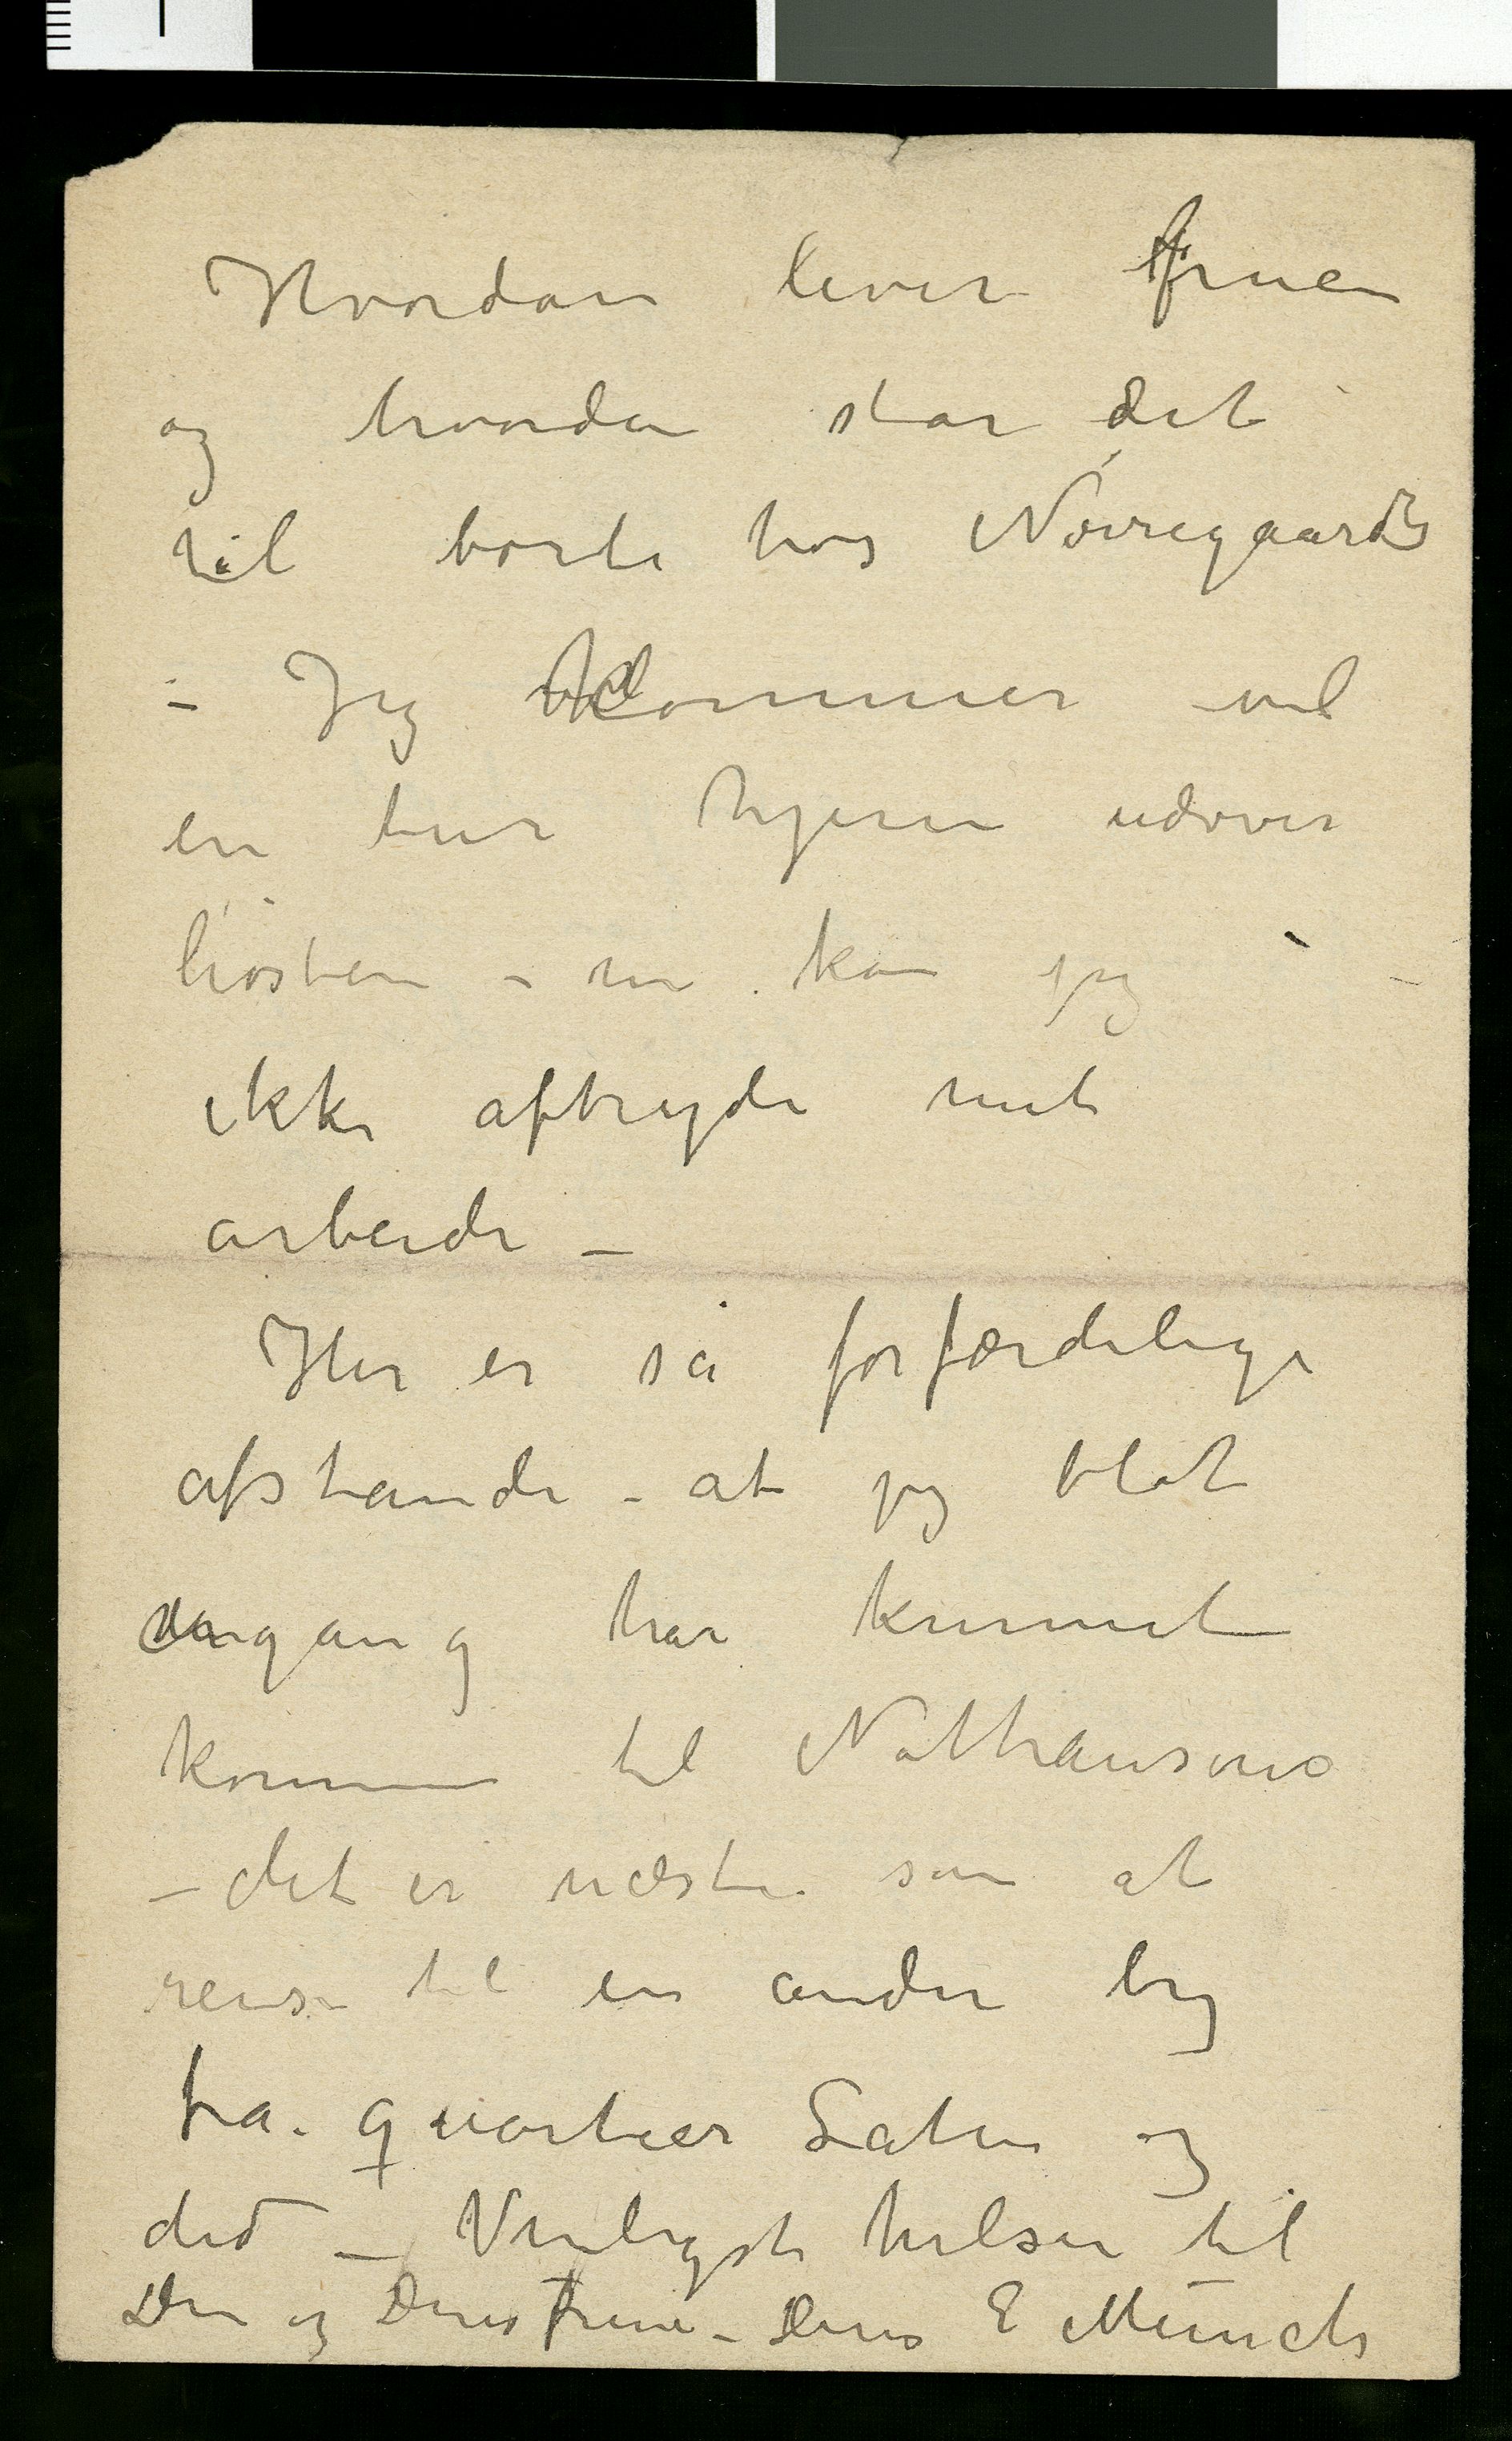 Hvordan lever fruen
og hvordan står det
til borte hos Nørregaards
– Jeg kommer vel
en tur hjem udover
høsten – nu kan jeg –
ikke afbryde mit
arbeide –
Her er så forfærdelige
afstande – at jeg blot
engang har kunnet
komme til Nathansens
– det er næsten som at
reise til en anden by
fra quartier Latin og
did – Venligste hilsen til
Dem og Deres frue – Deres E Munch